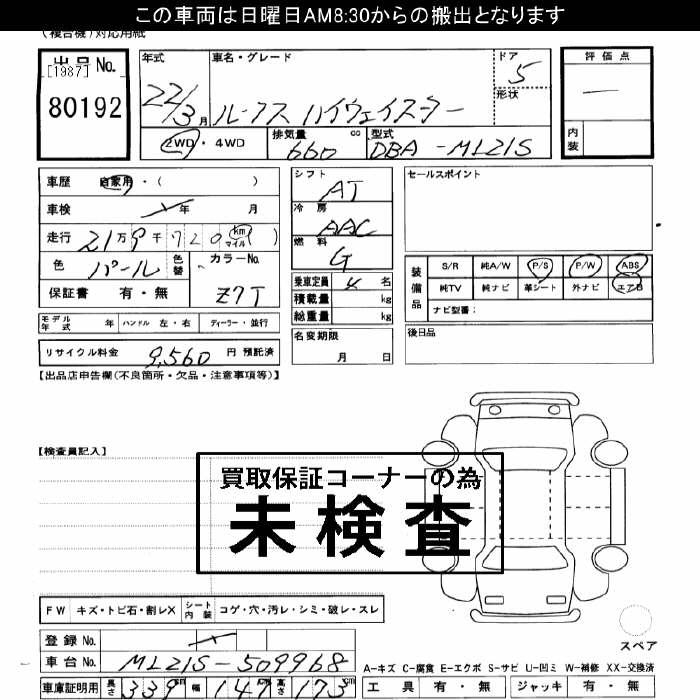 この車両は日曜日AM8:30からの搬出となります
(複合機)対応用紙
出品No.
[1987]
80192
年式 22/3月
車名・グレード ルークス ハイウェイスター
ドア 5
形状
評価点 —
内装
2WD・4WD
排気量 660 cc
型式 DBA-ML21S
車歴 自家用・( )
車検 年 月
走行 21万9千720 km マイル ( )
色 パール 色替
カラーNo. Z7T
保証書 有・無
シフト AT
冷房 AAC
燃料 G
乗車定員 4 名
積載量 kg
総重量 kg
名変期限 月 日
セールスポイント
装備品
S/R 純A/W P/S P/W ABS
純TV 純ナビ 革シート 外ナビ エアB
ナビ型番:
後日品
モデル年式 年 ハンドル 左・右 ディーラー・並行
リサイクル料金 9,560 円 預託済
【出品店申告欄(不良箇所・欠品・注意事項等)】
【検査員記入】
買取保証コーナーの為
未検査
FW キズ・トビ石・割レX シート内装 コゲ・穴・汚レ・シミ・破レ・スレ
登録No.
車台No. ML21S-509968
車庫証明用 長さ 339 cm 幅 147 cm 高さ 173 cm
スペア
A-キズ C-腐食 E-エクボ S-サビ U-凹ミ W-補修 XX-交換済
工具 有・無 ジャッキ 有・無